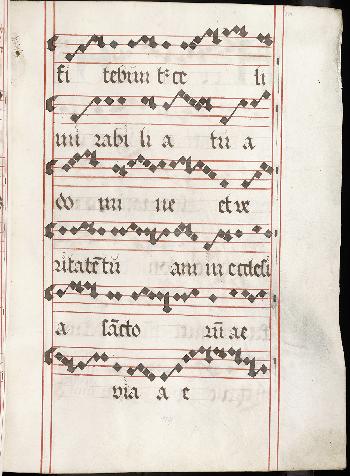 fi tebūtꝰ ce li
mi rabi li a tu a
do mi ne et ve
ritatē tu am in ecclesi
a sācto rū ae
uia a e